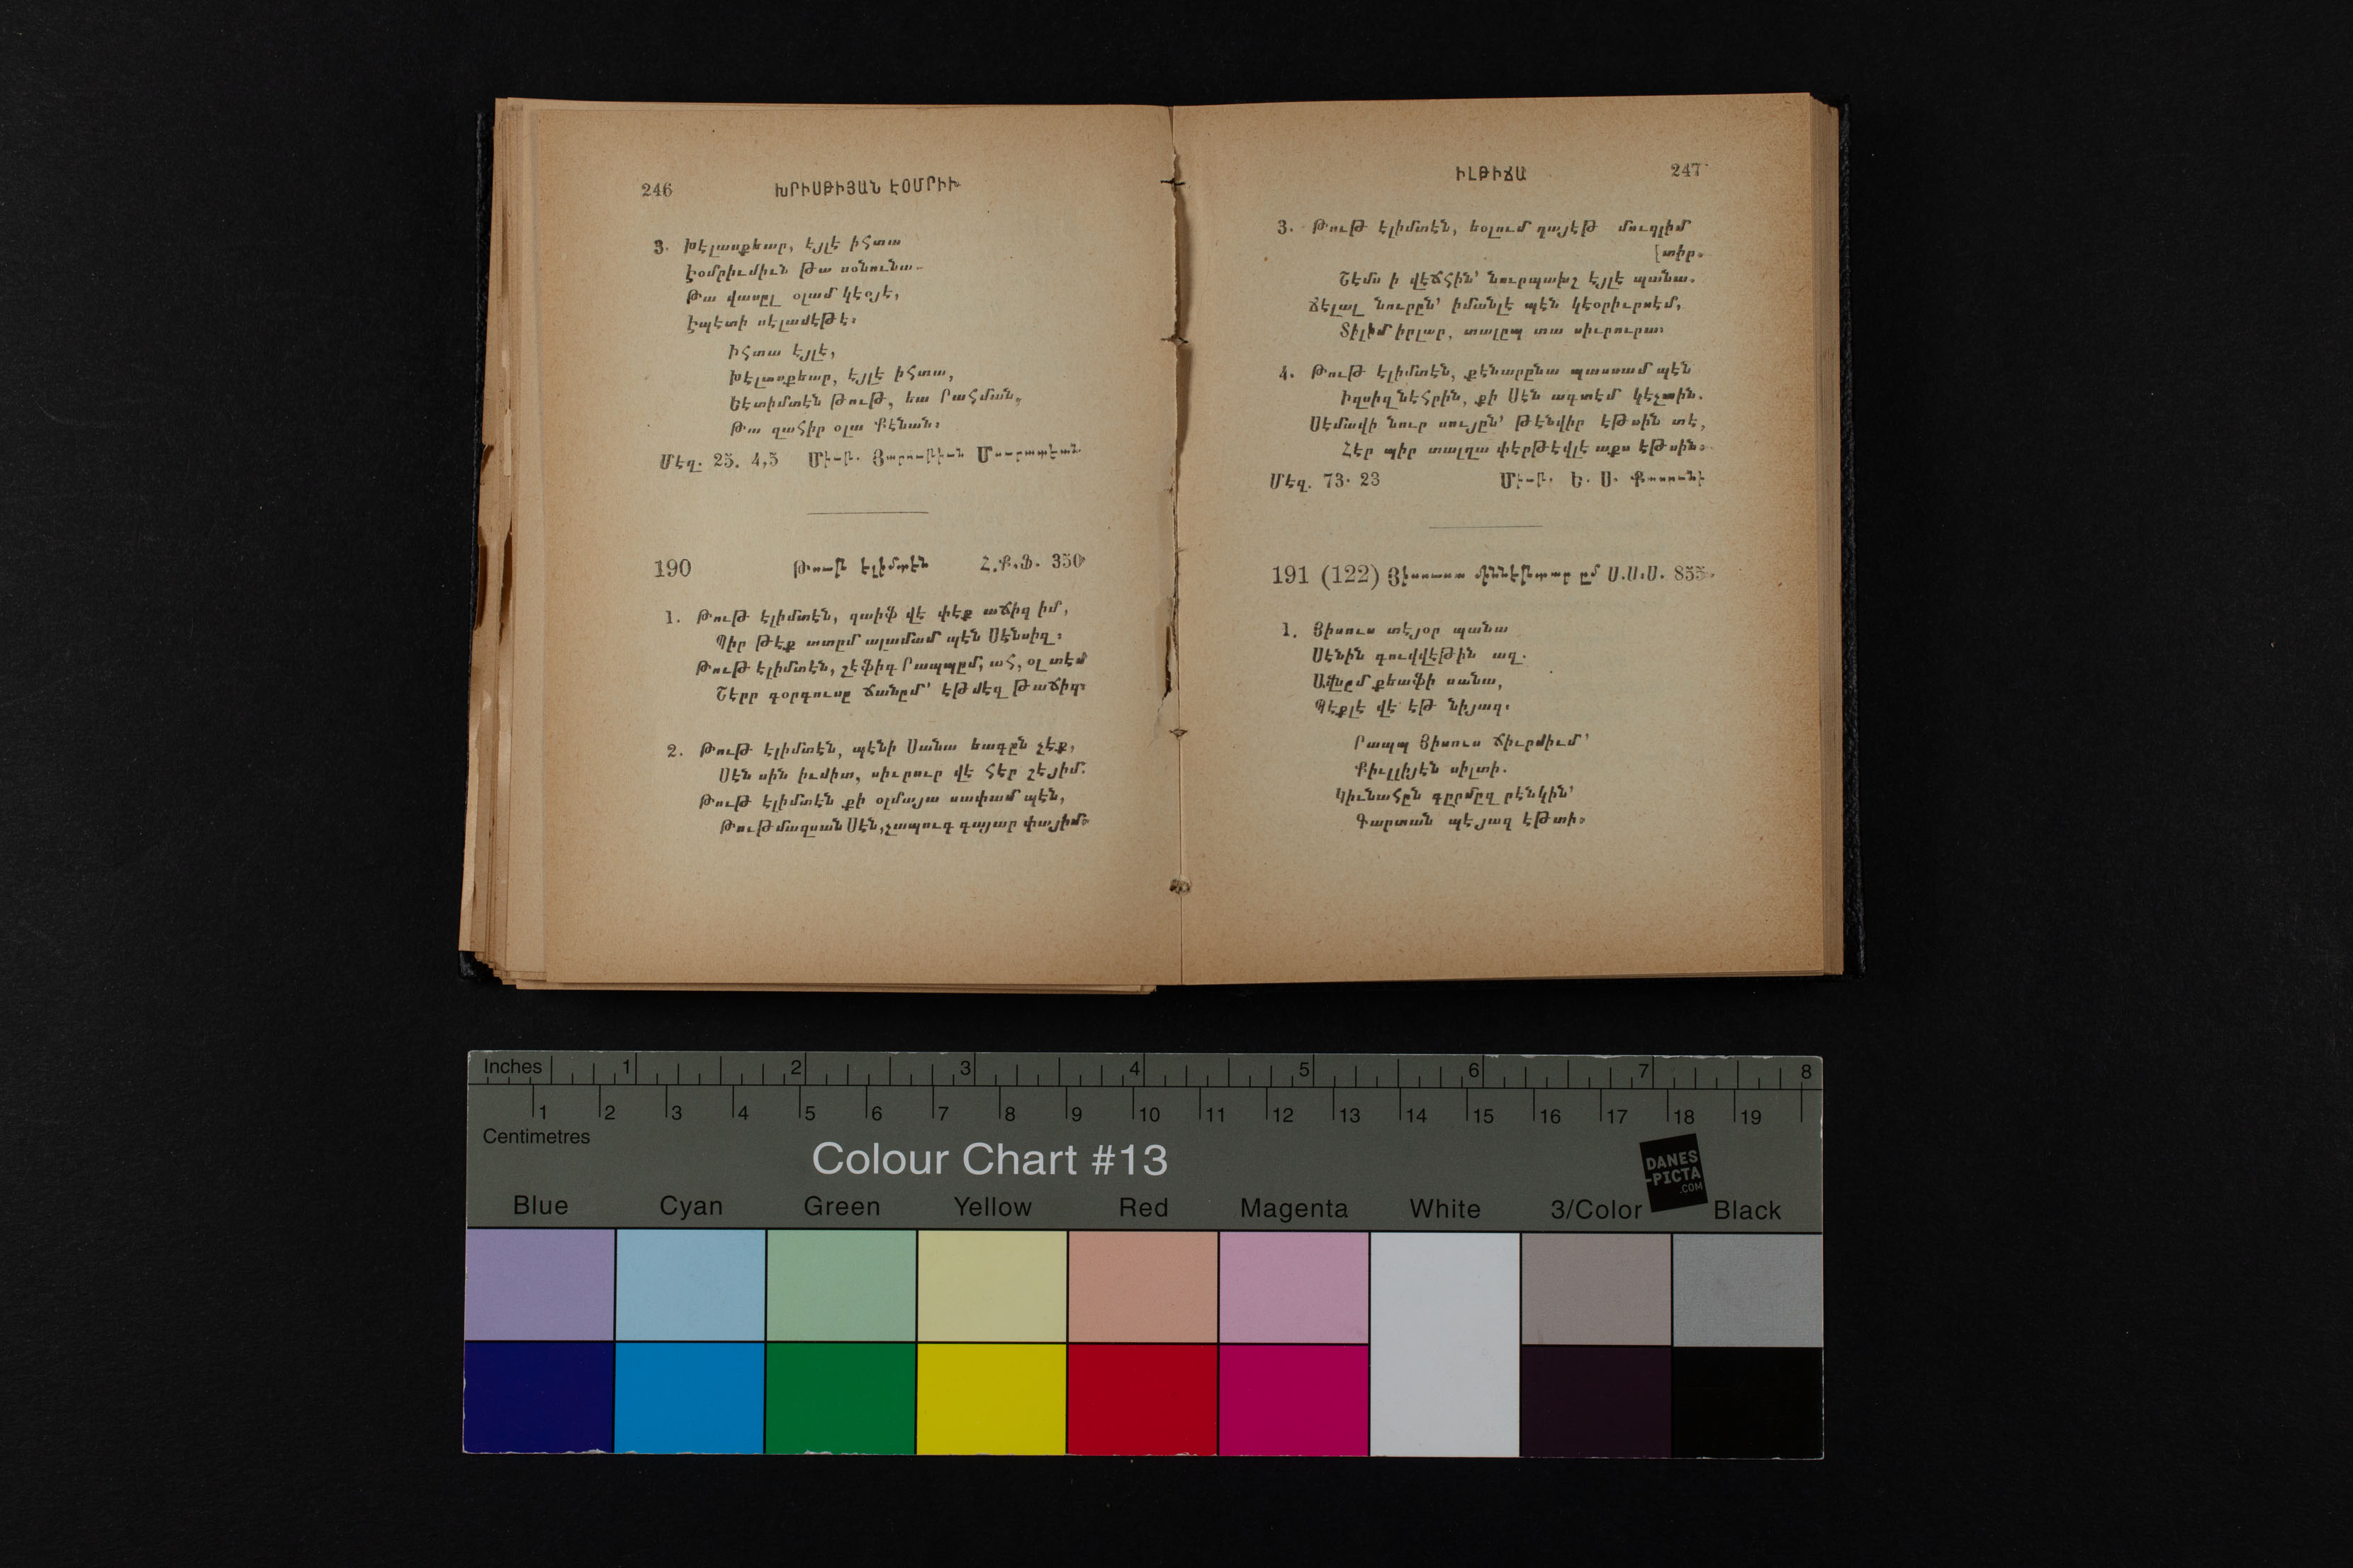 246 ԽՐԻՍԹԻՅԱՆ ԷՕՄՐԻՒ
3. Խէլասքեար, էյլէ իհտա
Էօմրիւմիւն թա սօնունա.
Թա վասըլ օլամ կէօյէ,
Էպէտի սէլամէթէ։
Իհտա էյլէ,
Խէլասքեար, էյլէ իհտա,
Եէտիմտէն թութ, եա Րահման,
Թա զահիր օլա Քէնան։
Մէզ. 25. 4,5
190 Թութ էլիմտէն Հ.Ք.Ֆ. 350
1. Թութ էլիմտէն, զաիֆ վէ փէք աճիզ իմ,
Պիր թէք ատըմ ալամամ պէն Սէնսիզ։
Թութ էլիմտէն, շէֆիգ Րապպըմ, ահ, օլ տէմ
Շէրր գօրգուսը ճանըմ՚ էթմէզ թաճիզ։
2. Թութ էլիմտէն, պէնի Սանա եագըն չէք,
Սէն սին իւմիտ, սիւրուր վէ հէր շէյիմ.
Թութ էլիմտէն քի օլմայա սափամ պէն,
Թութմազսան Սէն, չապուգ գայար փայիմ։
ԻԼԹԻՃԱ 247
3. Թութ էլիմտէն, եօլում ղայէթ մուղլիմ
[տիր.
Շէմս ի վէճհին՚ նուրպախշ էյլէ պանա.
Ճէլալ նուրըն՚ իմանլէ պէն կէօրիւրսէմ,
Տիլիմ իրլար, տալըպ տա սիւրուրա։
4. Թութ էլիմտէն, քէնարընա պասսամ պէն
Իզսիզ նէհրին, քի Սէն ագտէմ կէչտին.
Սէմավի նուր սույըն՚ թէնվիր էթսին տէ,
Հէր պիր տալղա փէրթէվլէ աքս էթսին։
Մէզ. 73. 23
191 (122) Յիսուսա միննէթտար ըմ Ս.Ս.Ս. 855
1. Յիսուս տէյօր պանա
Սէնին գուվվէթին ազ.
Աֆըմ քեաֆի սանա,
Պէքլէ վէ էթ նիյազ։
Րապպ Յիսուս ճիւրմիւմ՚
Քիւլլիյէն սիլտի.
Կիւնահըն գըրմըզ րէնկին՚
Գարտան պէյազ էթտի։
Inches 1 2 3 4 5 6 7 8
1 2 3 4 5 6 7 8 9 10 11 12 13 14 15 16 17 18 19
Centimetres
Colour Chart #13
DANES
-PICTA
.COM
Blue Cyan Green Yellow Red Magenta White 3/Color Black